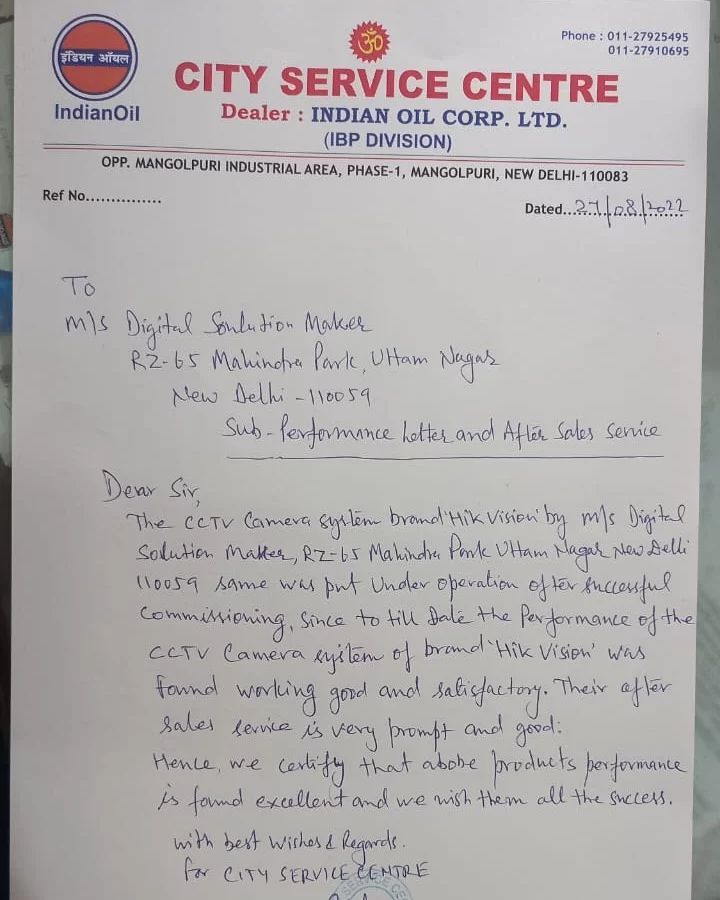 इंडियन ऑयल
IndianOil
ॐ
Phone : 011-27925495
011-27910695
CITY SERVICE CENTRE
Dealer : INDIAN OIL CORP. LTD.
(IBP DIVISION)
OPP. MANGOLPURI INDUSTRIAL AREA, PHASE-1, MANGOLPURI, NEW DELHI-110083
Ref No...............
Dated...27/08/2022
To
M/s Digital Sonlution Maker
RZ-65 Mahindra Park, Uttam Nagar
New Delhi -110059
Sub- Performance Letter and After Sales Service
Dear Sir,
The CCTV Camera system brand 'Hik Vision' by M/s Digital
Solution Maker, RZ-65 Mahindra Park Uttam Nagar New Delhi
110059 same was put Under operation after successful
Commissioning, Since to till Date the Performance of the
CCTV Camera system of brand 'Hik Vision' was
found working good and satisfactory. Their after
sales service is very prompt and good:
Hence, we certify that abobe products performance
is found excellent and we wish them all the success.
with best Wishes & Regards.
For CITY SERVICE CENTRE
SERVICE CE